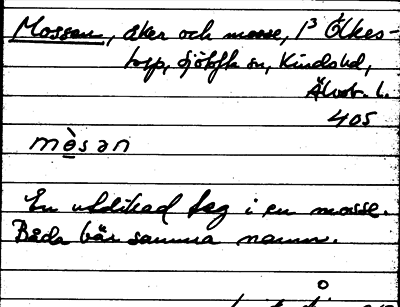 Mossen, åker och mosse, 1³ Ölkes-
torp, Sjötofta sn, Kinds hd,
Älvsb. l.
405
mòsan
En utdikad teg i en mosse.
Båda bär samma namn.